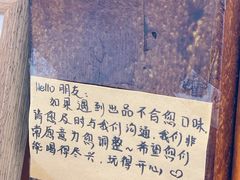 Hello 朋友：
如果遇到出品不合您口味,
请您及时与我们沟通,我们非
常愿意为您调整~希望您们
吃喝得尽兴,玩得开心♡